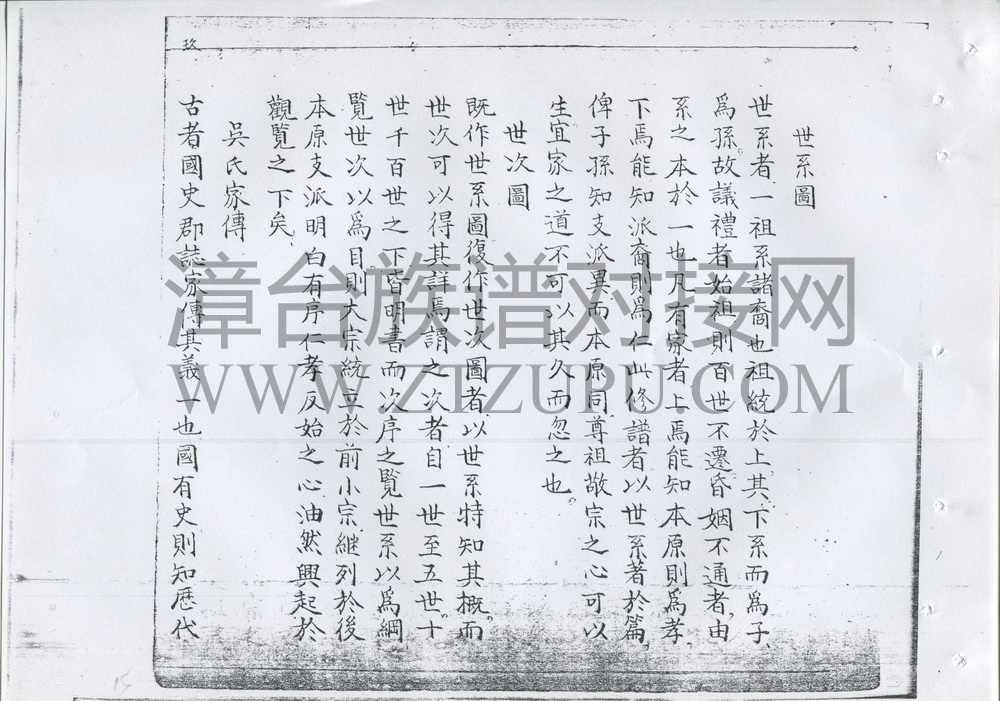 玖
世系圖
世系者一祖系諸裔也祖統於上其下系而爲子
爲孫故議禮者始祖則百世不遷昏姻不通者由
系之本於一也凡有家者上焉能知本原則爲孝
下焉能知派裔則爲仁此修譜者以世系著於篇
俾子孫知支派異而本原同尊祖敬宗之心可以
生宜家之道不可以其久而忽之也
世次圖
既作世系圖復作世次圖者以世系特知其概而
世次可以得其詳焉謂之次者自一世至五世十
世千百世之下皆明書而次序之覽世系以爲綱
覽世次以爲目則大宗統立於前小宗継列於後
本原支派明白有序仁孝反始之心油然興起於
觀覽之下矣
吳氏家傳
古者國史郡誌家傳其義一也國有史則知歷代
漳台族谱对接网
WWW.ZTZUPU.COM
15